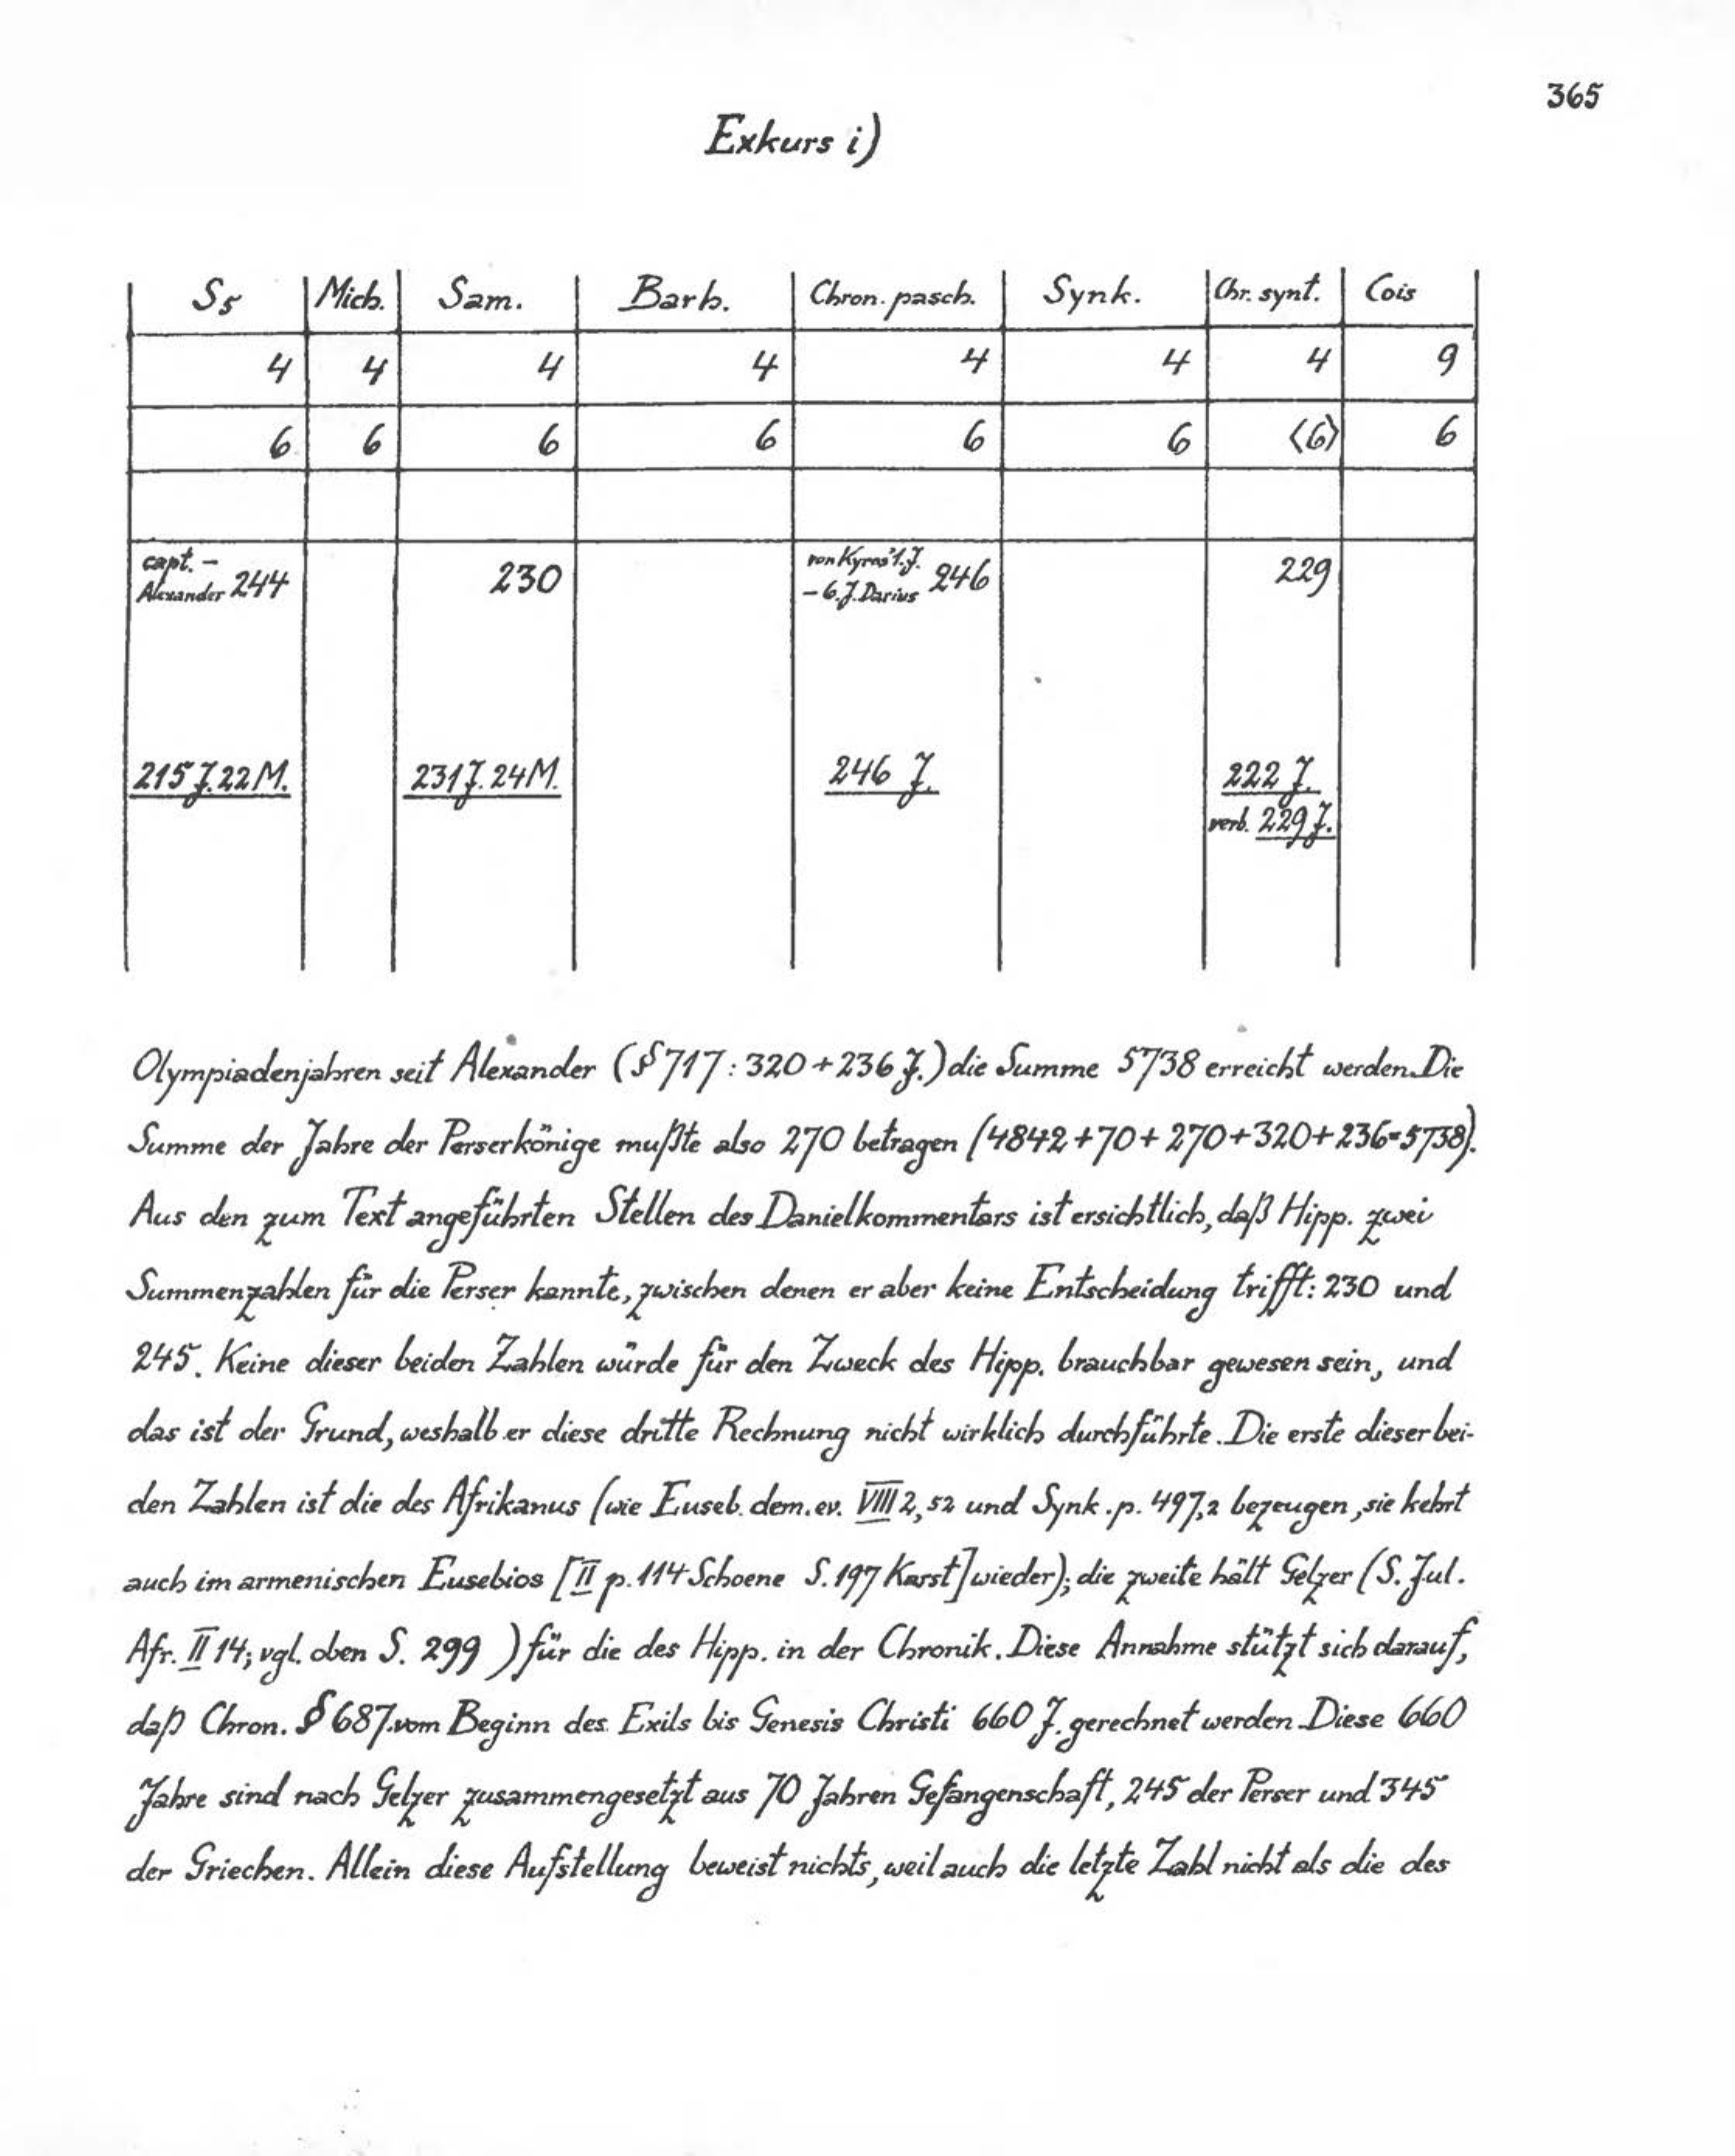 365
Exkurs i)
S5 Mich. Sam. Barb. Chron. pasch. Synk. Chr. synt. Cois
4 4 4 4 4 4 4 9
6 6 6 6 6 6 〈6〉 6
capt. – Alexander 244 230 von Kyros' 1. J. – 6. J. Darius 246 229
215 J. 22 M. 231 J. 24 M. 246 J. 222 J.
verb. 229 J.
Olympiadenjahren seit Alexander (§ 717: 320 + 236 J.) die Summe 5738 erreicht werden. Die
Summe der Jahre der Perserkönige mußte also 270 betragen (4842 + 70 + 270 + 320 + 236 = 5738).
Aus den zum Text angeführten Stellen des Danielkommentars ist ersichtlich, daß Hipp. zwei
Summenzahlen für die Perser kannte, zwischen denen er aber keine Entscheidung trifft: 230 und
245. Keine dieser beiden Zahlen würde für den Zweck des Hipp. brauchbar gewesen sein, und
das ist der Grund, weshalb er diese dritte Rechnung nicht wirklich durchführte. Die erste dieser bei-
den Zahlen ist die des Afrikanus (wie Euseb. dem. ev. VIII 2, 52 und Synk. p. 497,2 bezeugen, sie kehrt
auch im armenischen Eusebios [II p. 114 Schoene S. 197 Karst] wieder); die zweite hält Gelzer (S. Jul.
Afr. II 14; vgl. oben S. 299 ) für die des Hipp. in der Chronik. Diese Annahme stützt sich darauf,
daß Chron. § 687 vom Beginn des Exils bis Genesis Christi 660 J. gerechnet werden. Diese 660
Jahre sind nach Gelzer zusammengesetzt aus 70 Jahren Gefangenschaft, 245 der Perser und 345
der Griechen. Allein diese Aufstellung beweist nichts, weil auch die letzte Zahl nicht als die des